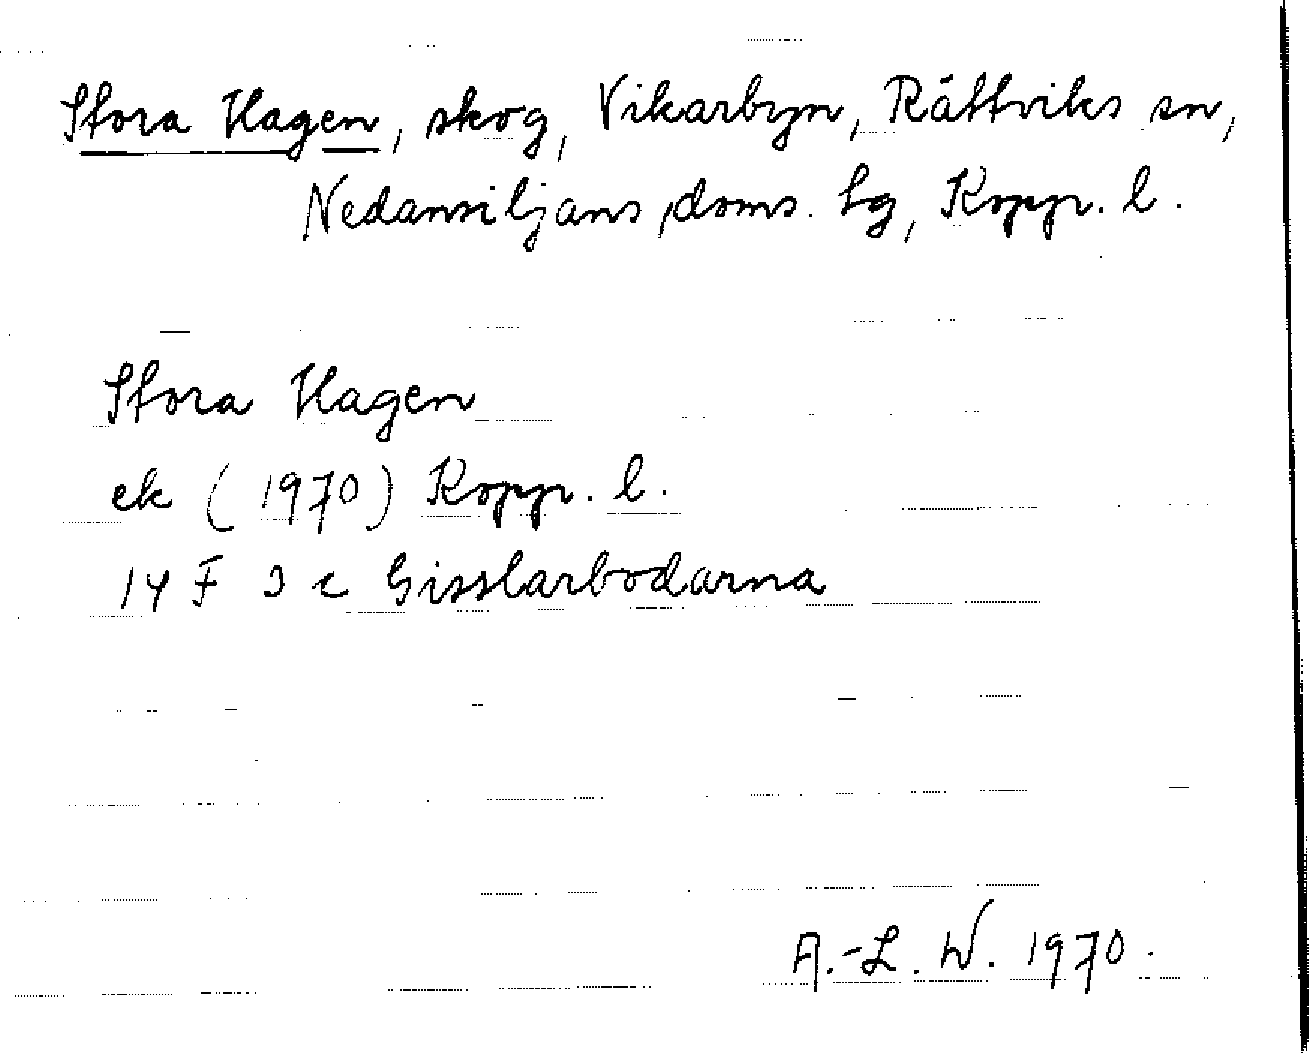 Stora Hagen, skog, Vikarbyn, Rättviks sn,
Nedansiljans doms. tg, Kopp. l.
Stora Hagen
ek (1970) Kopp. l.
14 F 3 c Gisslarbodarna
A.-L. W. 1970.